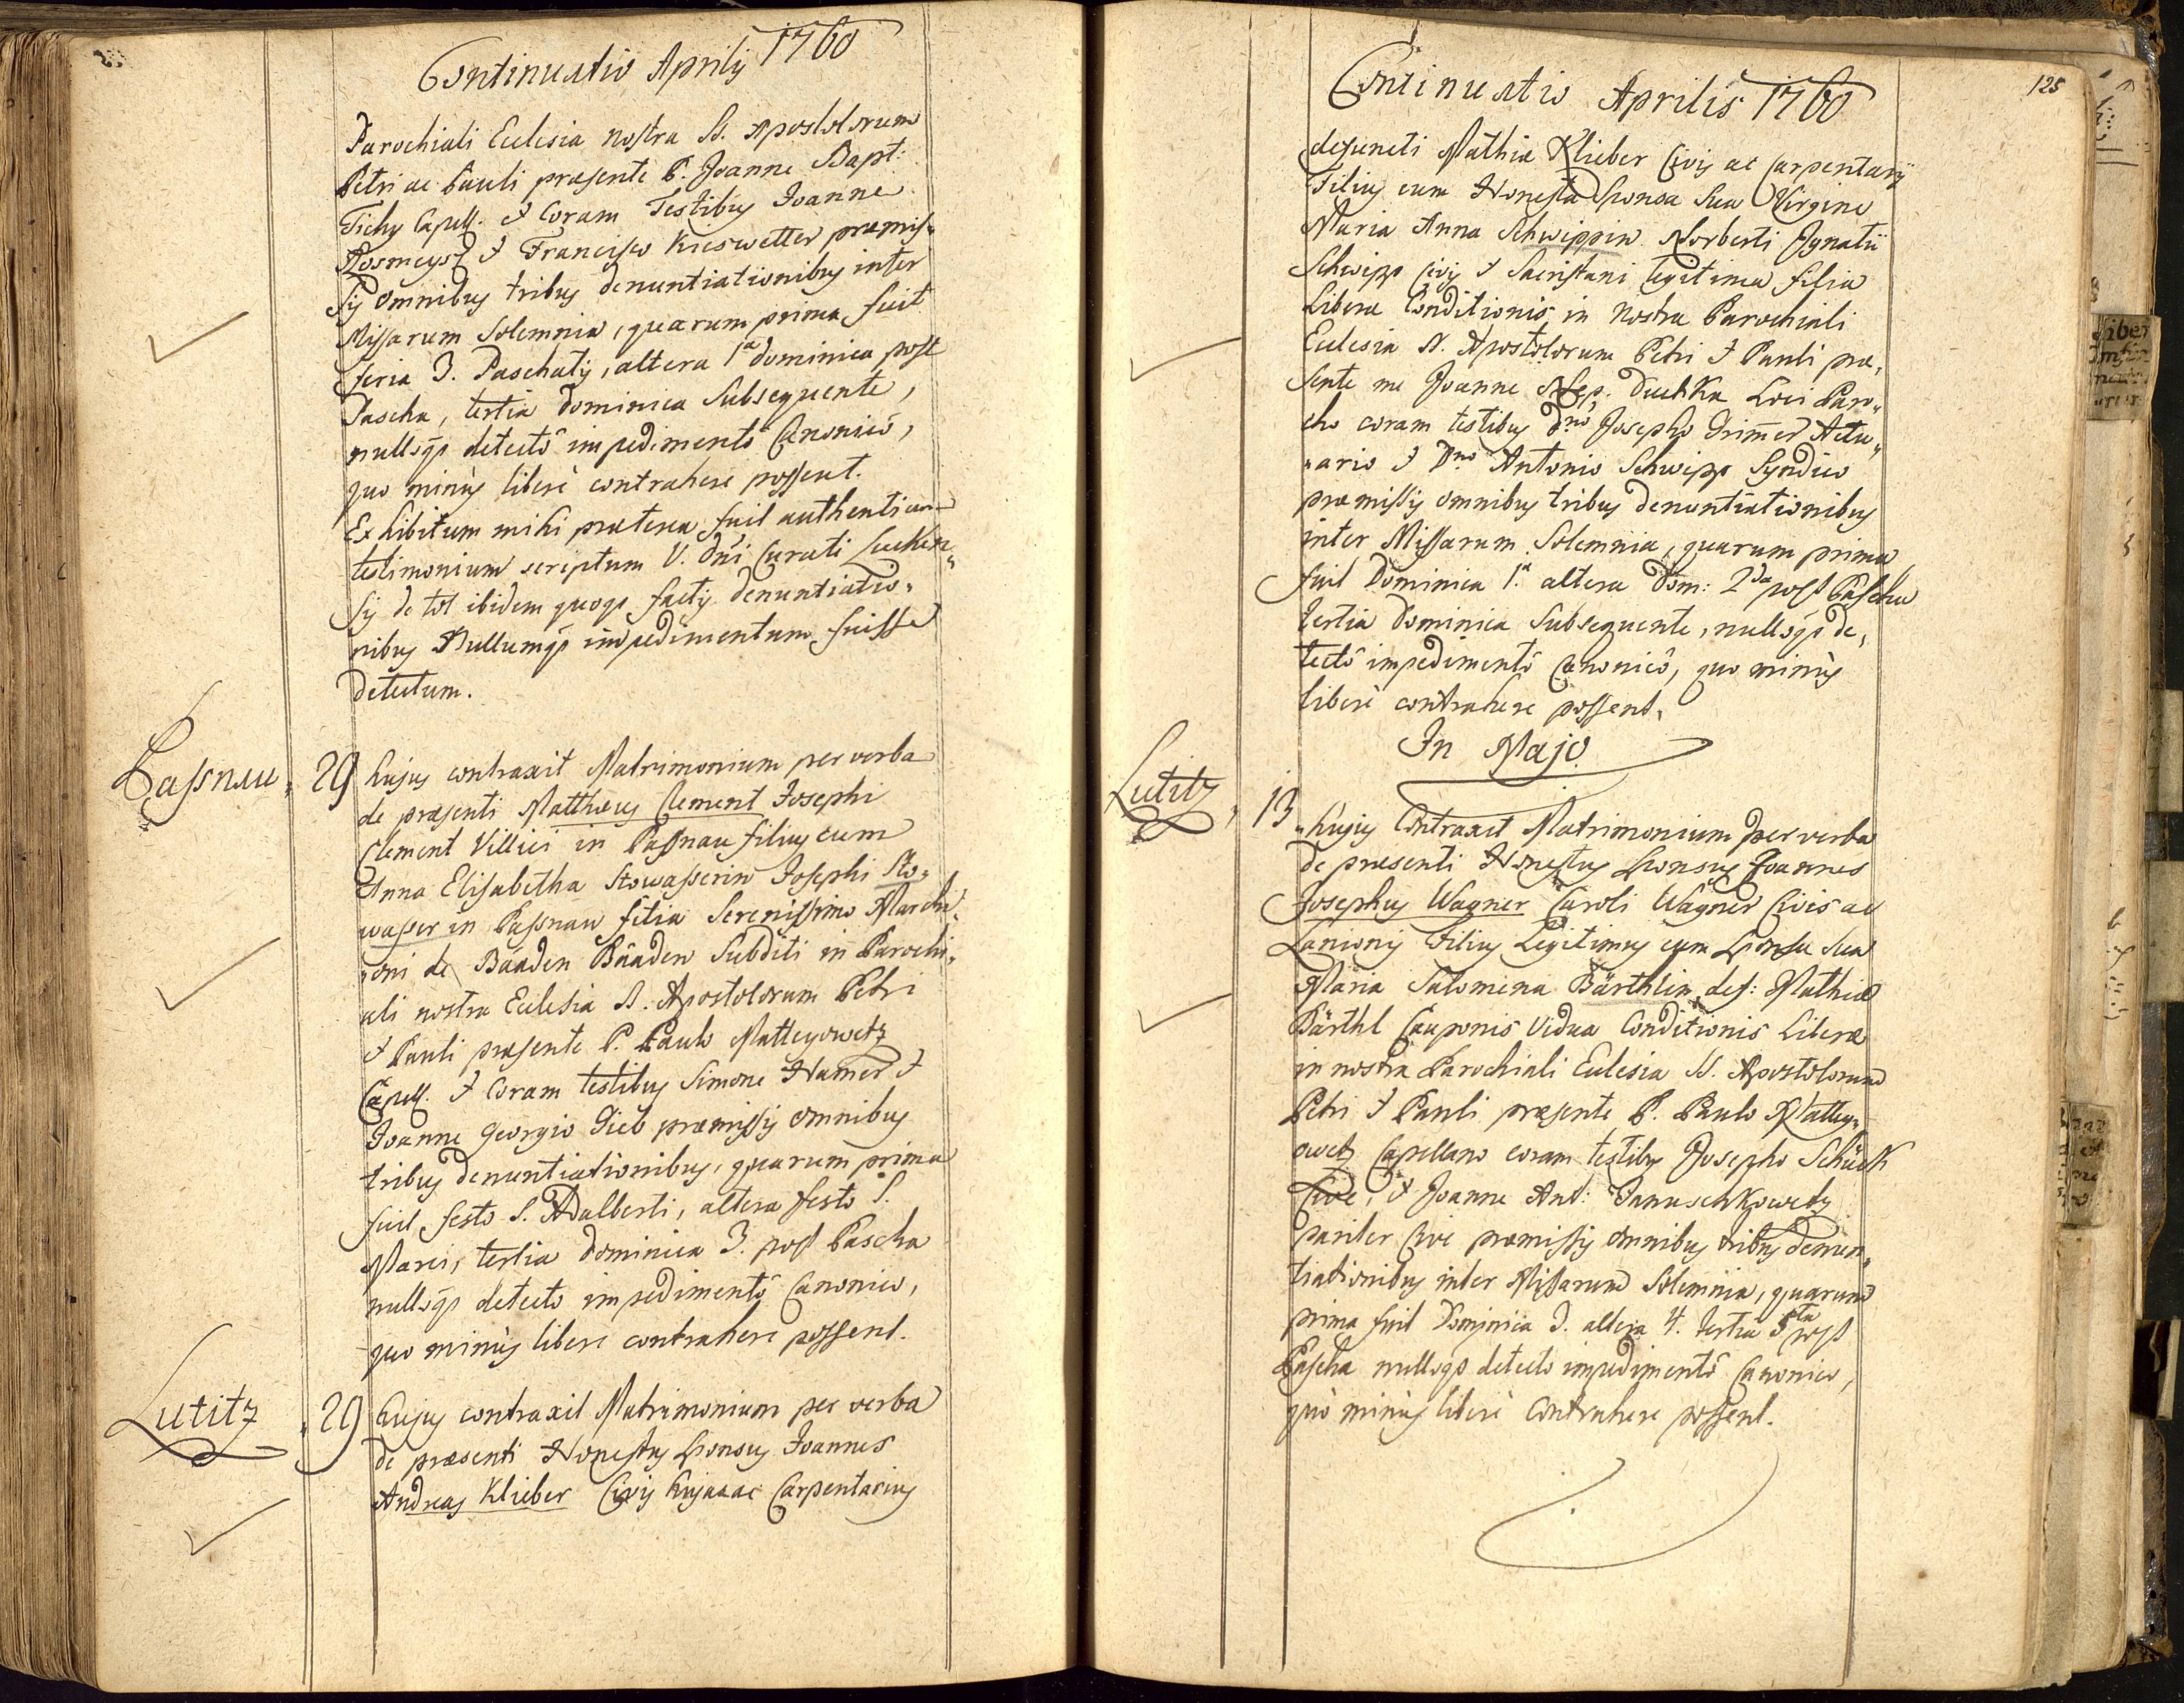 Continuatio Aprilis 1760
Parochiali Ecclesia nostra SS. Apostolorum
Petri ac Pauli præsente P. Joanne Bapt:
Tichy Capell. & Coram Testibus Joanne
& Francisco Kieswetter præmis-
sis omnibus tribus denuntiationibus inter
Missarum Solemnia, quarum prima fuit
feria 3. Paschatis, altera 1ª dominica post
Pascha, tertia dominica Subsequente,
nullóq3 detectô impedimentô Canonicô,
quo minùs liberè contrahere possent.
Exhibitum mihi præterea fuit authenticum
testimonium scriptum V. Dñi Curati Lucken-
sis de tot ibidem quoq3 factis denuntiatio-
nibus Nullumq3 impedimentum fuisse
detectum.
Passnau, 29 hujus contraxit Matrimonium per verba
de præsenti Matthæus Clement Josephi
Clement Villici in Passnau filius cum
Anna Elisabetha Stowasserin Josephi Sto-
wasser in Passnau filia Serenissimo Marchi-
oni de Baaden Baaden Subditi in Parochi-
ali nostra Ecclesia SS. Apostolorum Petri
& Pauli præsente P. Paulo Matteyowetz
Capell. & Coram testibus Simone Hamer &
Joanne Georgio Sieb præmissis omnibus
tribus denuntiationibus, quarum prima
fuit festo S. Adalberti, altera festo S.
Marci, tertia dominica 3. post Pascha
nullóq3 detecto impedimentô Canonico,
quo minùs libere contrahere possent.
Lutitz, 29 hujus contraxit Matrimonium per verba
de præsenti Honestus Sponsus Joannes
Andreas Klieber Civis hujas ac Carpentarius
125
Continuatio Aprilis 1760
defuncti Mathiæ Klieber Civis ac Carpentarij
Filius cum Honesta Sponsa Sua Virgine
Maria Anna Schwippin Norberti Ignatii
Schwipp Civis & Sacristani legitima filia
Liberæ Conditionis in Nostra Parochiali
Ecclesia SS. Apostolorum Petri & Pauli præ-
sente me Joanne Nep. Duchka Loci Paro-
cho coram testibus Dno Josepho Grim̄er Actu-
ario & Dno Antonio Schwipp Syndico
præmissis omnibus tribus denuntiationibus
inter Missarum Solemnia, quarum prima
fuit Dominica 1.ª altera Dom: 2da post Pascha
tertia Dominica Subsequente, nullóq3 de-
tectô impedimentô Canonicô, quo minùs
liberè contrahere possent.
In Majo
Lutitz, 13 hujus Contraxit Matrimonium per verba
de præsenti Honestus Sponsus Joannes
Josephus Wagner Caroli Wagner Civis ac
Lanionis Filius Legitimus cum Sponsa Sua
Maria Salomena Bärthlin def: Mathiæ
Bärthl Cauponis Vidua Conditionis Liberæ
in nostra Parochiali Ecclesia SS. Apostolorum
Petri & Pauli præsente P. Paulo Mattey-
owetz Capellano coram testibus Josepho Schück
Cive, & Joanne Ant: Januschkowetz
pariter Cive præmissis omnibus tribus denun-
tiationibus inter Missarum Solemnia, quarum
prima fuit Dominica 3. altera 4. tertia 5ta post
Pascha nullóq3 detecto impedimentô Canonico,
quò minùs liberè Contrahere possent.